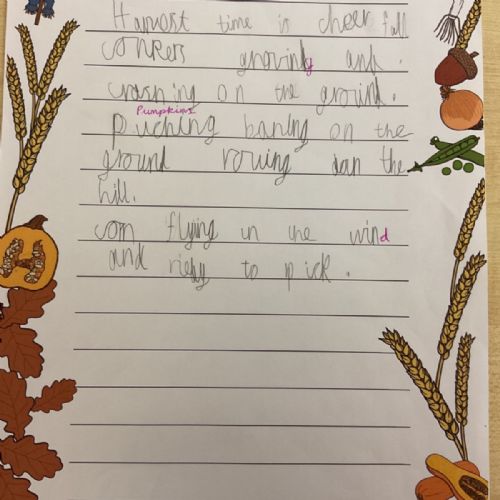 Harvest time is cheer full
conkers growing and
crashing on the ground.
Pumpkins
puching baning on the
ground rowing dan the
hill.
corn flying in the wind
and riedy to pick.